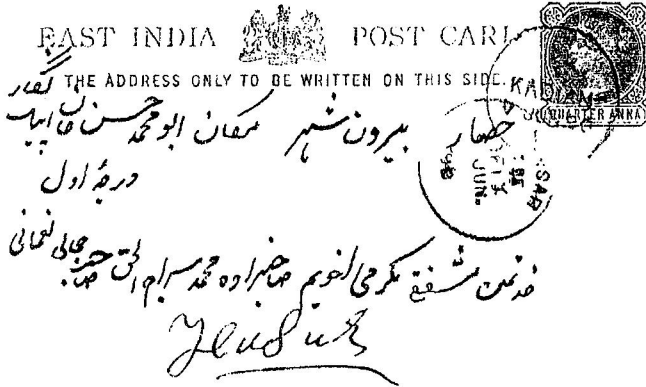 EAST INDIA POST CARD
THE ADDRESS ONLY TO BE WRITTEN ON THIS SIDE.
QUARTER ANNA
KADIAN
JUN.
حصار بیرون شہر مکان ابو محمد حسن
درجۂ اول
مشفق مکرمی اخویم صاحبزادہ محمد سراج الحق صاحب جمالی نعمانی